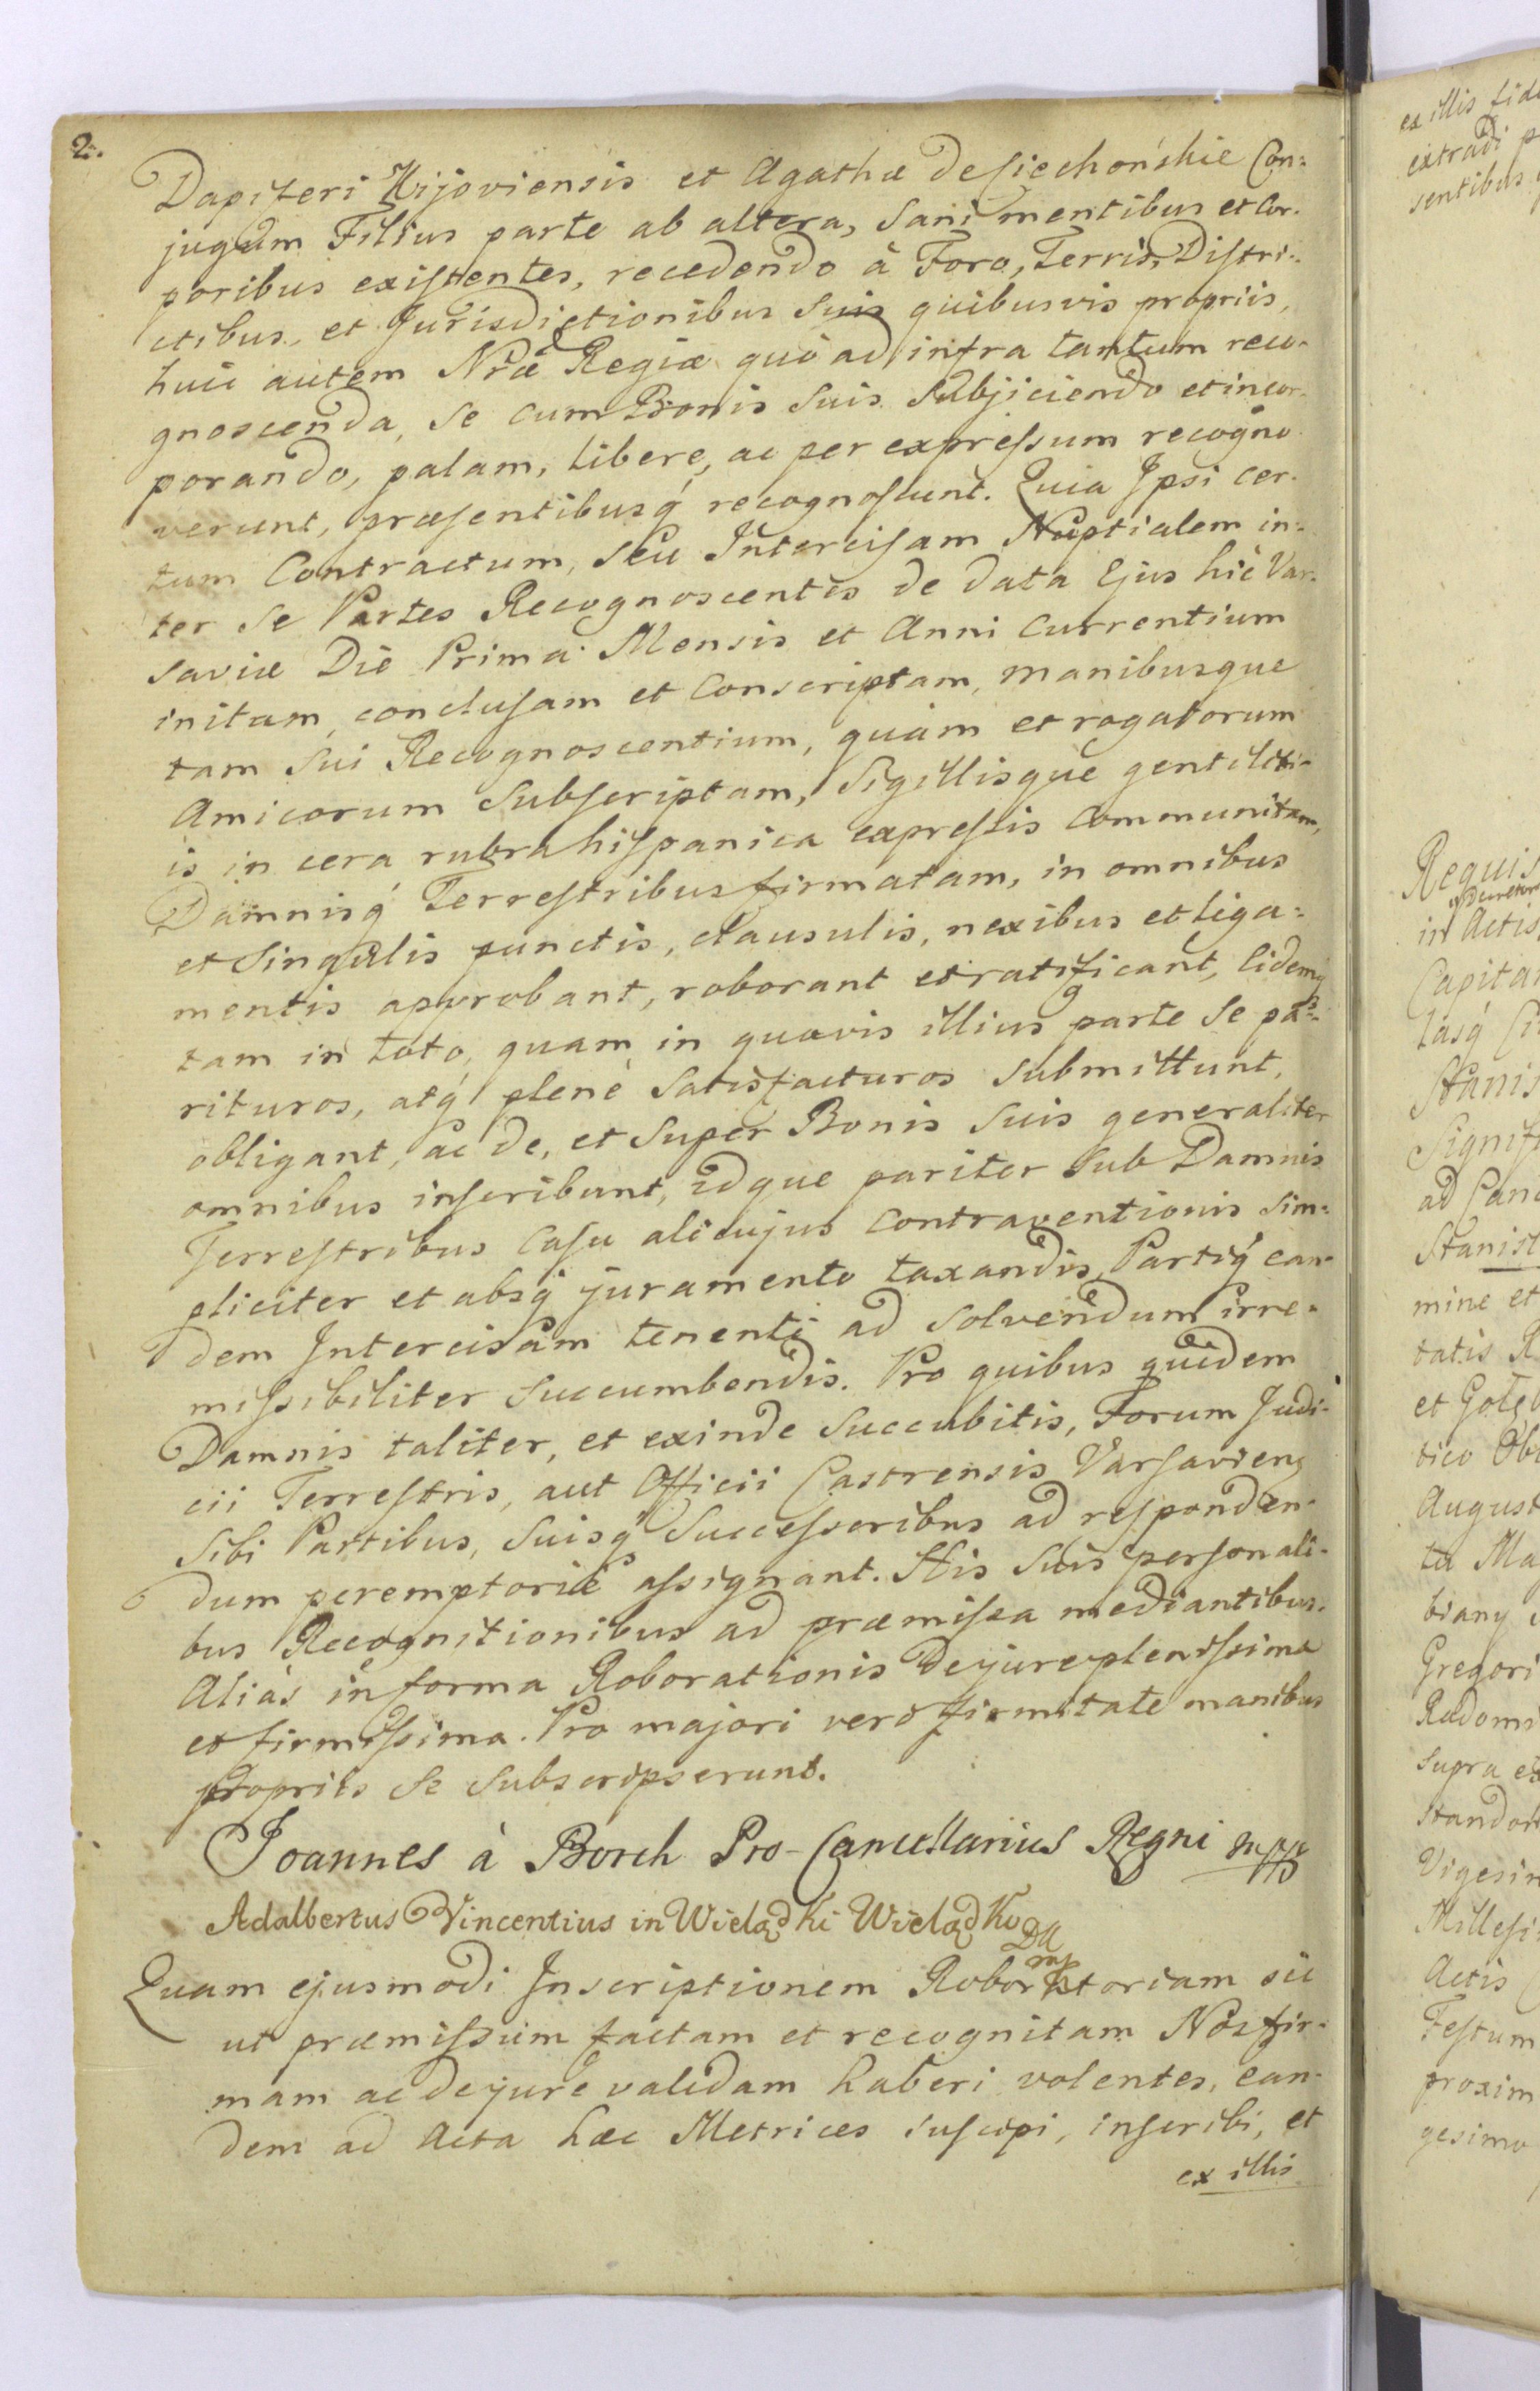 2.
Dapiferi Kijoviensis et Agathæ de Ciechońskie Con:
jugum Filius parte ab altera, sani mentibus et Cor.
poribus existentes, recedendo à Foro, Terris, Distri:
ctibus, et Jurisdictionibus suis quibusvis propriis,
huic autem Nrae Regiæ quò ad infra tantum reco-
gnoscenda, se cum Bonis suis subjiciendo et incor-
porando, palam, libere, ac per expressum recogno
verunt, præsentibusq́ recognoscunt. Quia Ipsi cer-
tum Contractum, seu Intercisam Nuptialem in:
ter se Partes Recognoscentes de data Ejus hic Var-
saviæ Die Prima Mensis et Anni Currentium
initam, conclusam et Conscriptam, manibusque
tam sui Recognoscentium, quàm et rogatorum
Amicorum subscriptam, Sigillisque gentiliti-
is in cera rubra hispanica expressis Communitam,
Damnisq́ Terrestribus firmatam, in omnibus
et singulis punctis, clausulis, nexibus et liga:
mentis approbant, roborant et ratificant, Eidemq́
tam in toto, quam in quavis illius parte se pa-
rituros, atq́ plenè satisfacturos submittunt,
obligant, ac de, et super Bonis suis generaliter
omnibus inscribunt, idque pariter sub Damnis
Terrestribus Casu alicujus Contraventionis sim:
pliciter et absq́ juramento taxandis, Partiq́ ean-
dem Intercisam tenenti ad solvendum irre-
missibiliter succumbendis. Pro quibus quidem
Damnis taliter, et exinde succubitis, Forum Judi-
cii Terrestris, aut Officii Castrensis Varsavien
sibi Partibus, suisq́ Successoribus ad responden-
dum peremptoriè assignant. His suis personali-
bus Recognitionibus ad præmissa mediantibus.
Aliàs in forma Roborationis de jure plenissima
et firmissima. Pro majori vero firmitate manibus
propriis se subscripserunt.
Joannes à Borch Pro-Cancellarius Regni mpp
Adalbertus Vincentius in Wielądki Wielądko
Quam ejusmodi Inscriptionem Roboratoriam sic
ut præmissum factam et recognitam Nos fir-
mam ac de jure validam haberi volentes, ean-
dem ad Acta hæc Metrices suscipi, inscribi, et
ex illis
ex illis
extradi
sentibus
Requis
in Actis
Stanis
ad
Stanisl
mine et
tatis
et
August
Gregori
Radomi
supra
Vigesi
Millesi
Actis
Festum
proxim
gesimo